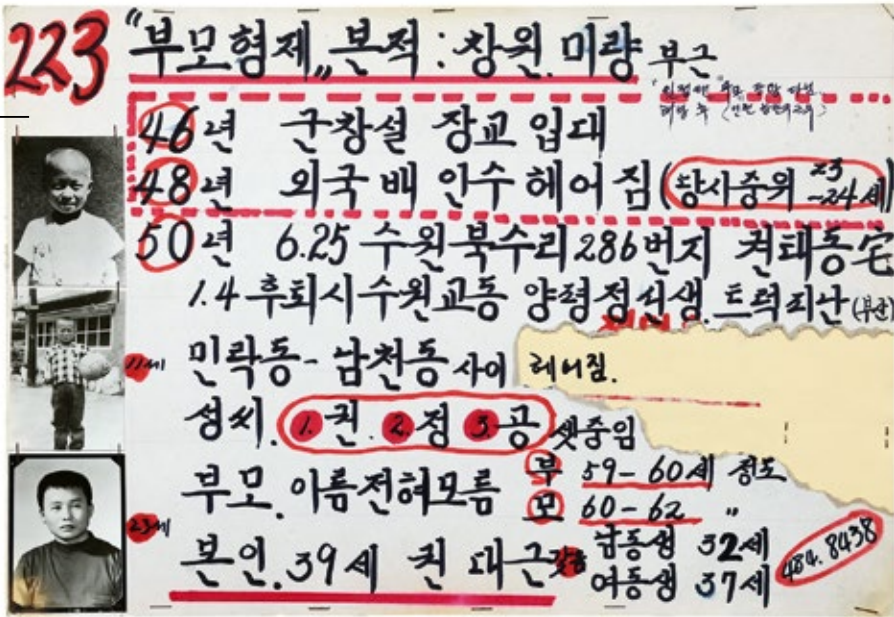 223 "부모형제„ 본적 : 창원. 미량 부근
46년 군창설 장교 입대
48년 외국 배 인수 헤어 짐 (당시중위 23-24세)
50년 6.25 수원북수리 286번지 권태동宅
1.4 후퇴시수원교동 양평정선생. 트럭피난 (부산)
11세 민락동 - 남천동 사이 헤어짐.
성씨. 1. 권. 2. 정 3. 공 셋중임
부모. 이름전혀모름 부 59-60세 정도
모 60-62 〃
23세 본인. 39세 권 태근
남동생 32세
여동생 37세
484.8438